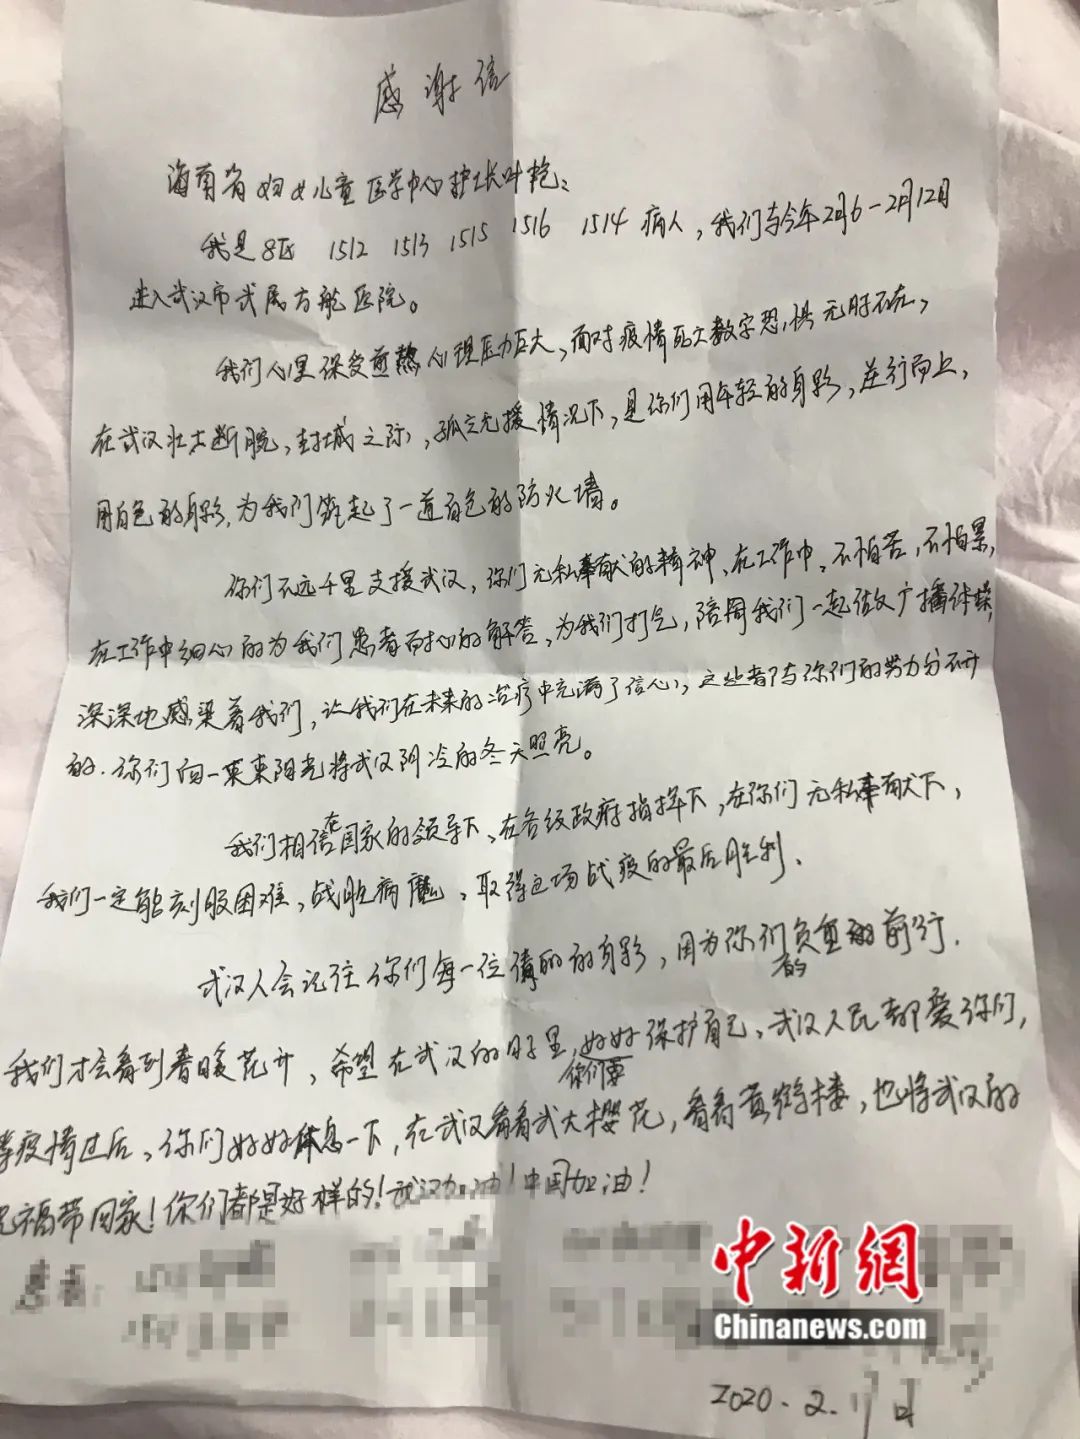 感谢信
海南省妇女儿童医学中心护士长叶艳：
我是8区 1512 1513 1515 1516 1514 病人，我们与今年2月6-2月12日
进入武汉市武展方舱医院。
我们心里保受煎熬心理压力巨大、面对疫情死亡数字恐惧无时不在，
在武汉壮士断腕、封城之际，孤立无援情况下，是你们用年轻的身影，逆行而上，
用白色的身影，为我们筑起了一道白色的防火墙。
你们不远千里支援武汉，你们无私奉献的精神、在工作中、不怕苦，不怕累，
在工作中细心的为我们患者耐心的解答、为我们打气，陪同我们一起做广播体操，
深深地感染着我们，让我们在未来的治疗中充满了信心，这些都与你们的努力分不开
的．你们向一束束阳光将武汉阴冷的冬天照亮。
我们相信在国家的领导下、在各级政府指挥下，在你们无私奉献下，
我们一定能刻服困难，战胜病魔、取得这场战疫的最后胜利．
武汉人会记住你们每一位倩丽的身影，因为你们负重的前行．
我们才会看到春暖花开，希望在武汉的日子里，你们要好好保护自己、武汉人民都爱你们，
疫情过后、你们好好休息一下，在武汉看看武大樱花，看看黄鹤楼，也将武汉的
祝福带回家！你们都是好样的！武汉加油！中国加油！
患者：
中新網
Chinanews.com
2020．2．17日